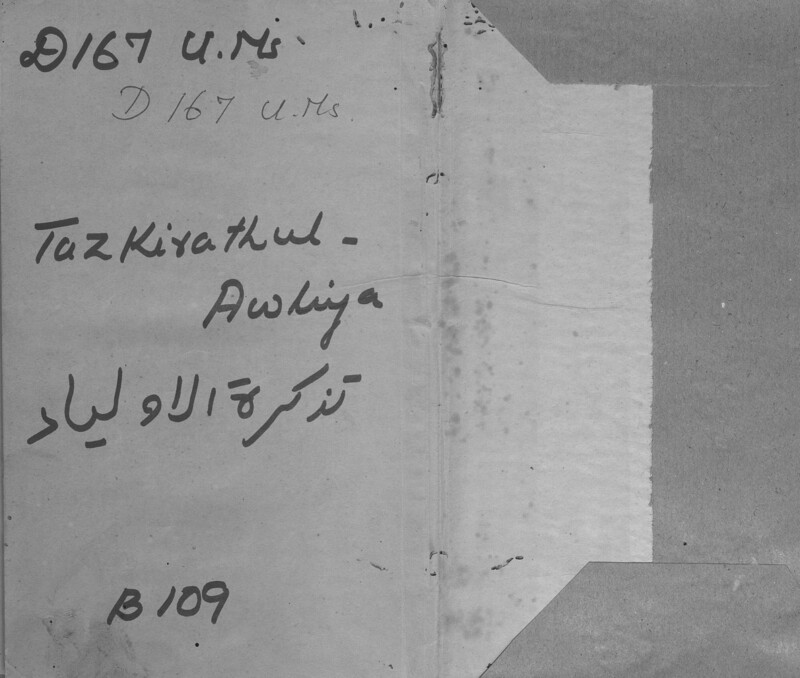 D167 U.Ms.
D 167 U.Ms.
Tazkirathul-
Awliya
تذكرة الاولياء
B 109